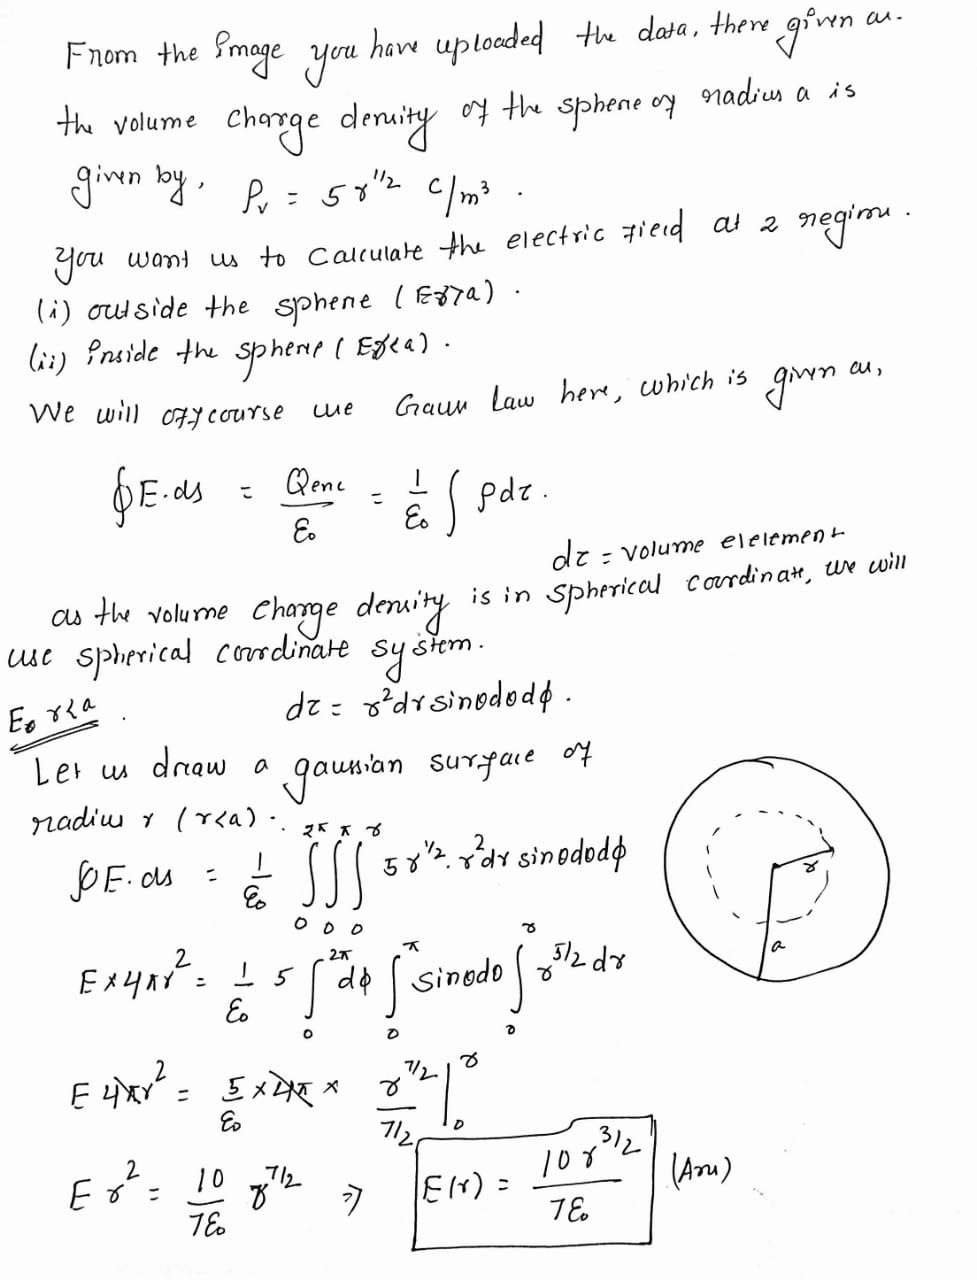 From the image you have uploaded the data, there given as.
the volume charge density of the sphere of radius a is
given by, ρv = 5 r^1/2 C/m³ .
you want us to calculate the electric field at 2 region .
(i) outside the sphere ( Er>a) .
(ii) inside the sphere ( Er<a) .
We will off course use Gauss Law here, which is given as,
∮E.ds = Qenc/ε₀ = 1/ε₀ ∫ ρdτ .
dτ = volume elelement
as the volume charge density is in spherical coordinate, we will
use spherical coordinate system.
E r<a . dτ = r²dr sinθdθdϕ .
Let us draw a gaussian surface of
radius r (r<a) .
∮E.ds = 1/ε₀ ∫₀^2π ∫₀^π ∫₀^r 5 r^1/2 . r²dr sinθdθdϕ
r
a
E×4πr² = 1/ε₀ 5 ∫₀^2π dϕ ∫₀^π sinθdθ ∫₀^r r^5/2 dr
E 4πr² = 5/ε₀ × 4π × r^7/2 / 7/2 |₀^r
E r² = 10/7ε₀ r^7/2 ⇒ E(r) = 10 r^3/2 / 7ε₀ (Ans)